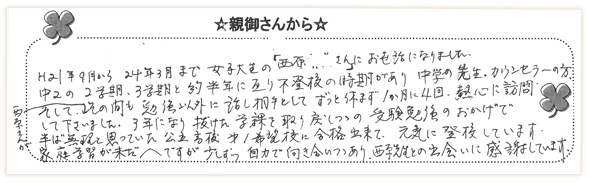 ☆親御さんから☆
H21年9月から24年3月まで女子大生の「西原……」さんにお世話になりました。
中2の2学期、3学期と約半年に亘り不登校の時期があり中学の先生、カウンセラーの方
そして、その間も勉強以外に話し相手としてずっと休まず1か月に4回、熱心に訪問
西原さんが
して下さいました。3年になり抜けた学課を取り戻しつつの受験勉強のおかげで
半ば無理と思っていた公立高校 第1希望校に合格出来て、元気に登校しています。
家庭学習が未だヘですが少しずつ自力で向き合いつつあり、西原先生との出会いに感謝しています